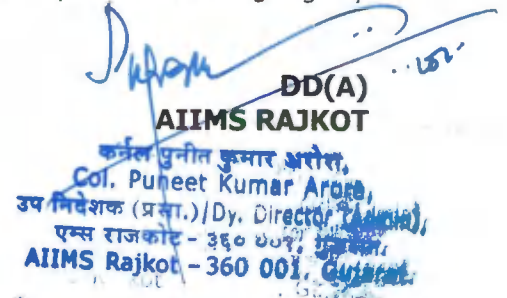 DD(A)
AIIMS RAJKOT
कर्नल पुनीत कुमार अरोरा,
Col. Puneet Kumar Arora,
उप निदेशक (प्रशा.)/Dy. Director (Admin),
एम्स राजकोट - ३६० ००१, गुजरात.
AIIMS Rajkot - 360 001, Gujarat.